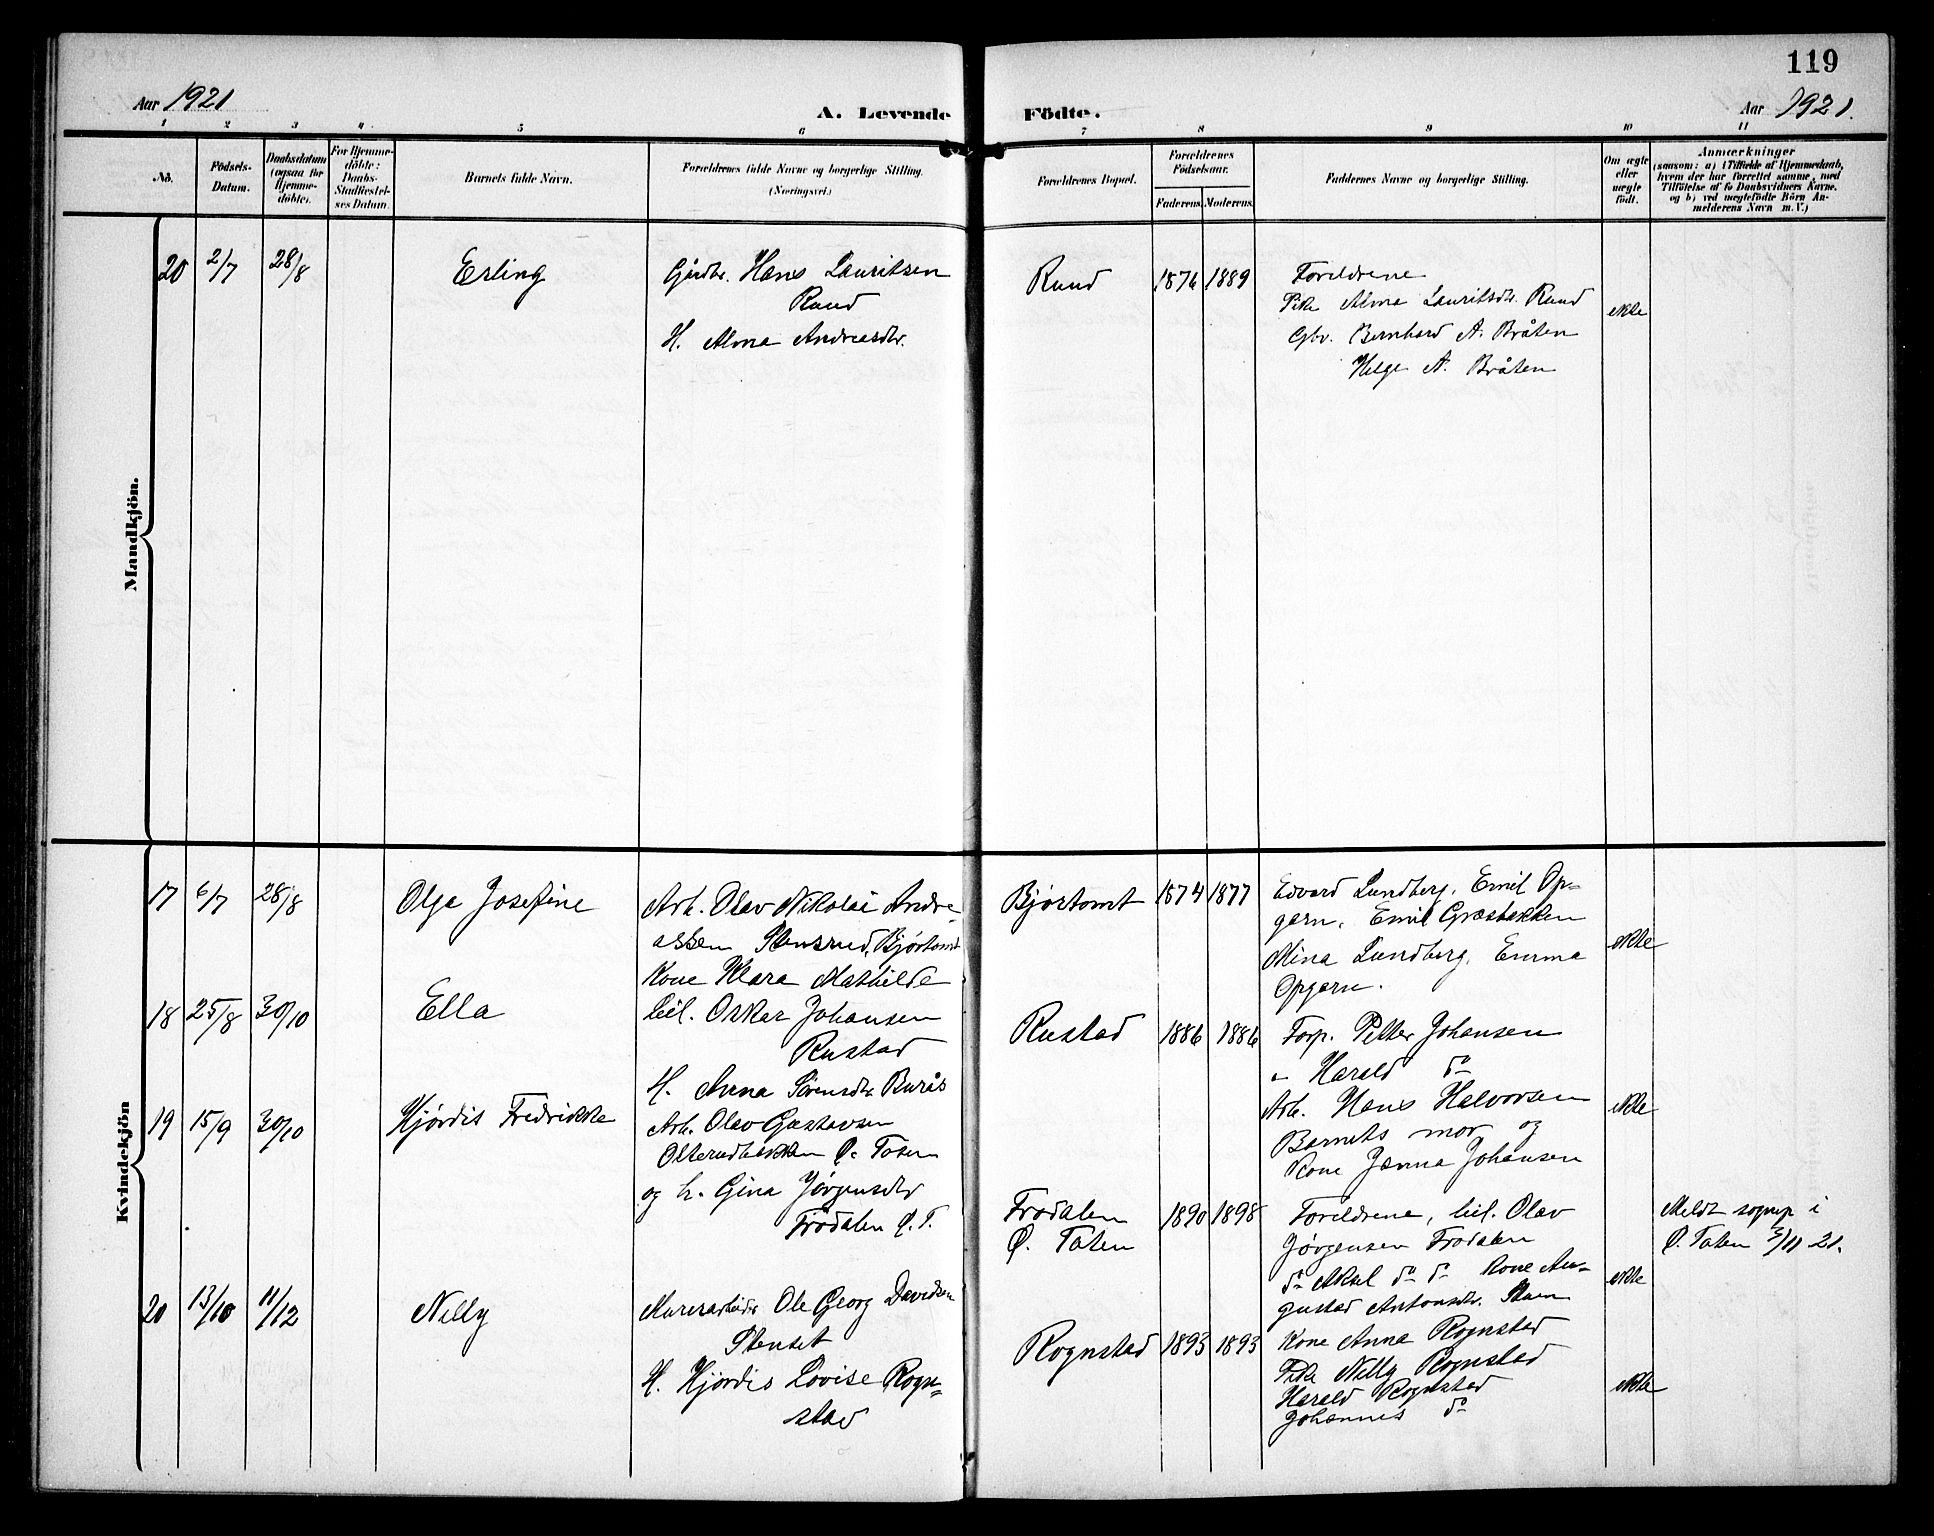 119
Aar 1921
A. Levende Födte.
Aar 1921.
1 2 3 4 5 6 7 8 9 10 11
No.
Födsels-
Datum.
Daabsdatum
(ogsaa for
Hjemme-
döbte).
For Hjemme-
döbte:
Daabs-
Stadfæstel-
ses Datum.
Barnets fulde Navn.
Forældrenes fulde Navne og borgerlige Stilling.
(Næringsvei.)
Forældrenes Bopæl.
Forældrenes
Födselsaar.
Faderens. Moderens.
Faddernes Navne og borgerlige Stilling.
Om ægte
eller
uægte
födt.
Anmærkninger
(saasom: a) i Tilfælde af Hjemmedaab,
hvem der har forrettet samme, med
Tilföielse af to Daabsvidners Navne.
og b) ved uægtefödte Börn An-
melderens Navn m. V.)
Mandkjön.
20 2/7 28/8 Erling
Gårdbr. Hans Lauritsen
Ruud
H. Alma Andreasdtr.
Ruud 1876 1889
Foreldrene
Pike Alma Lauritsdtr. Ruud
Gbr. Bernhard A. Bråten
Helge A. Bråten
ekte
Kvindekjön
17 6/7 28/8 Olga Josefine
Arb. Olav Nikolai Andre-
assen Stensrud, Bjørtomt
Kone Klara Mathilde
Bjørtomt 1874 1877
Edvard Lundberg, Emil Op-
garn, Emil Græsbakken
Mina Lundberg, Emma
Opgarn.
ekte
18 25/8 30/10 Ella
leil. Oskar Johansen
Rustad
H. Anna Sørensdtr Burås
Rustad 1886 1886
Forp. Petter Johansen
" Harald do
Arb. Hans Halvorsen
Barnets mor og
Kone Janna Johansen
ekte
19 15/9 30/10 Hjørdis Fredrikke
Arb. Olav Gustavsen
Olterudbakken Ø. Toten
og h. Gina Jørgensdtr
Frodalen Ø. T.
Frodalen
Ø. Toten
1890 1898
Foreldrene, leil. Olav
Jørgensen Frodalen
do Aksel do do Kone Au-
gustad Antonsdtr. Stuen
ekte
Meldt sognep i
Ø. Toten 3/11 21.
20 13/10 11/12 Nelly
Murerarbeider Ole Georg Davidsen
Stenset
H. Hjørdis Lovise Rogn-
stad
Rognstad 1893 1893
Kone Anna Rognstad
Pike Nelly Rognstad
Harald Rognstad
Johannes do
ekte